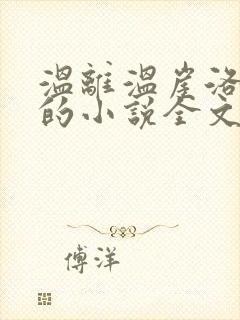 温離温崖洛
的小說全文
傅洋